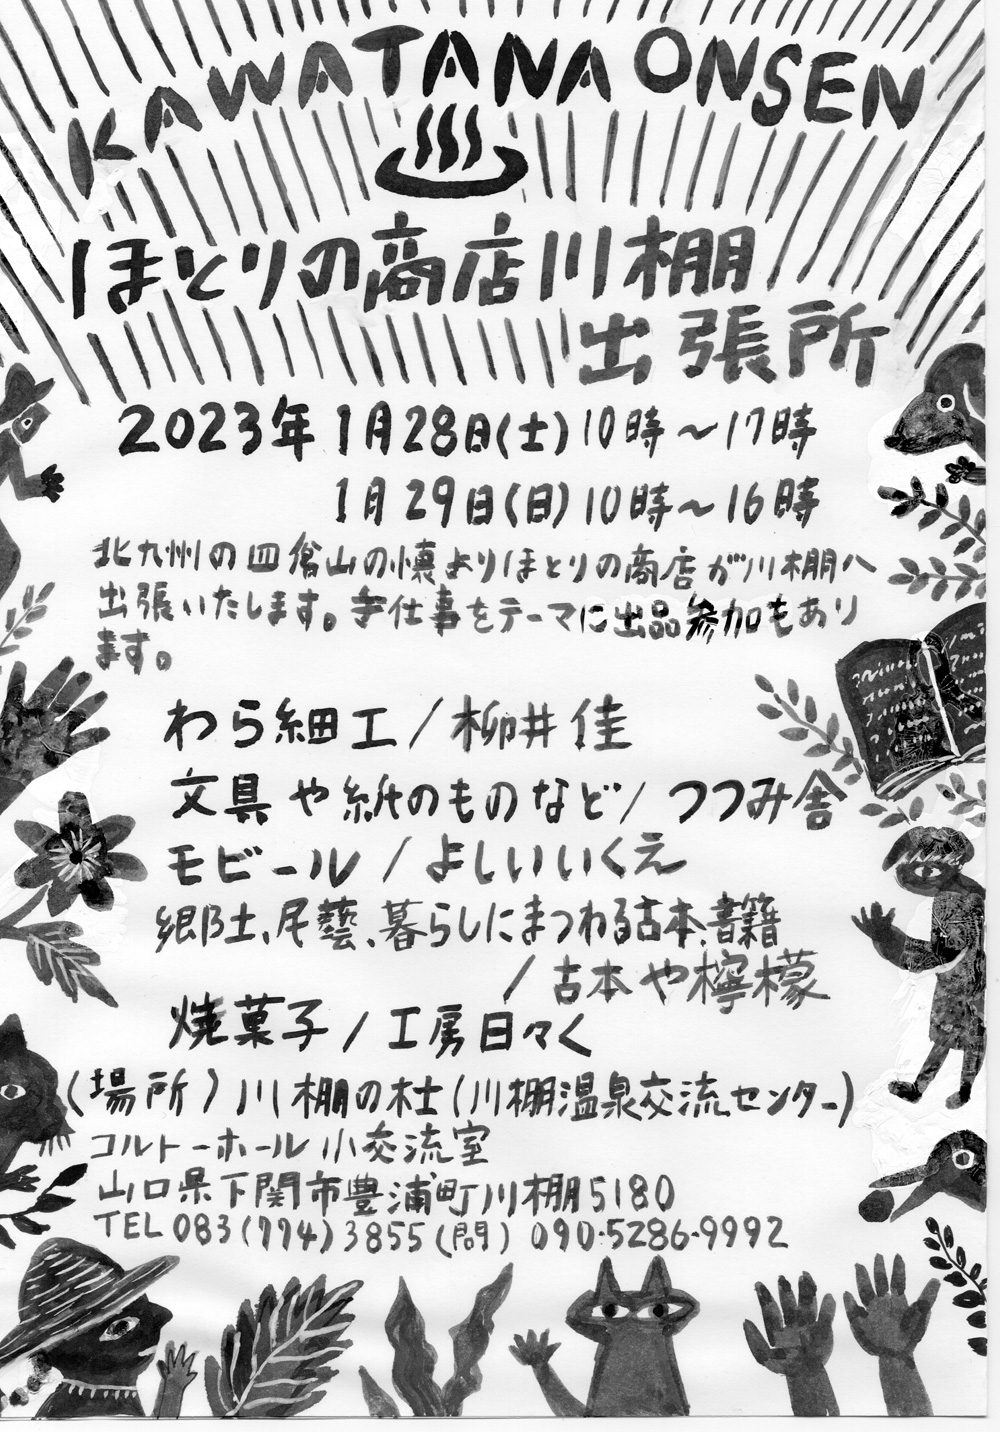 KAWATANA ONSEN
ほとりの商店川棚
出張所
2023年1月28日(土)10時～17時
1月29日(日)10時～16時
北九州の皿倉山の懐よりほとりの商店が川棚へ
出張いたします。手仕事をテーマに出品参加もあり
ます。
わら細工/柳井佳
文具や紙のものなど/つつみ舎
モビール/よしいいくえ
郷土、民藝、暮らしにまつわる古本、書籍
/古本や檸檬
焼菓子/工房日々く
(場所)川棚の杜(川棚温泉交流センター)
コルトーホール小交流室
山口県下関市豊浦町川棚5180
TEL 083(774)3855(問) 090-5286-9992